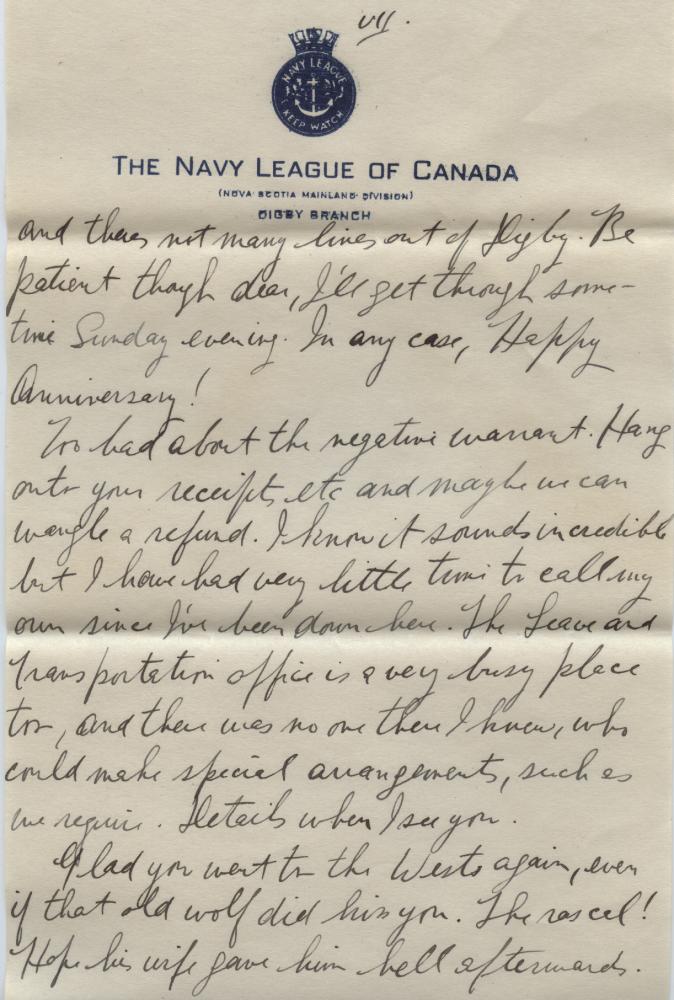 VII.
NAVY LEAGUE
KEEP WATCH
THE NAVY LEAGUE OF CANADA
(NOVA SCOTIA MAINLAND DIVISION)
DIGBY BRANCH
and theres not many lines out of Digby. Be
patient though dear, I'll get through some-
time Sunday evening. In any case, Happy
Anniversary!
Too bad about the negative warrant. Hang
onto your receipts etc and maybe we can
wangle a refund. I know it sounds incredible
but I have had very little time to call my
own since I've been down here. The Leave and
Transportation office is a very busy place
too, and there was no one there I knew, who
could make special arrangements, such as
we require. Details when I see you.
Glad you went to the Wests again, even
if that old wolf did kiss you. The rascel!
Hope his wife gave him hell afterwards.